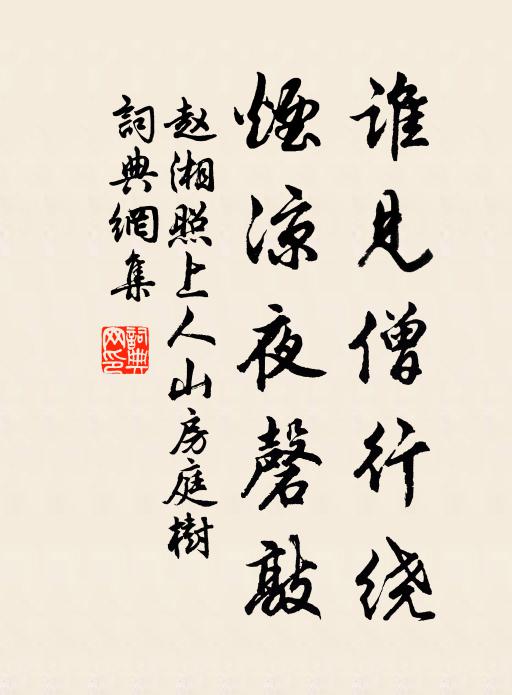 谁见僧行绕
煙凉夜磬敲
赵湘照上人山房庭樹
詞典網集
詞典网印